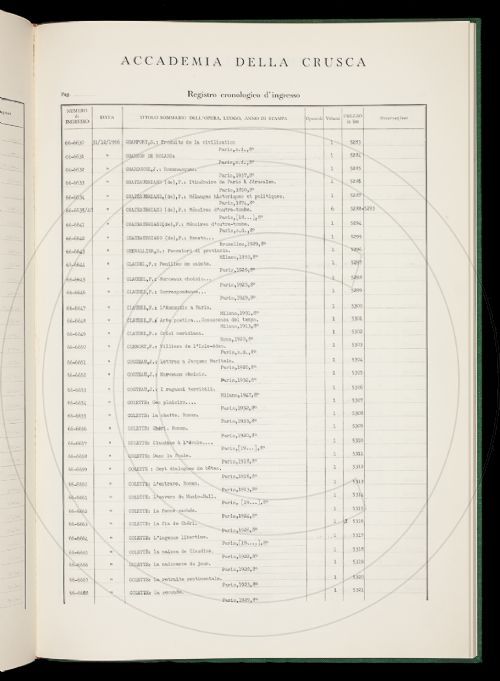 ACCADEMIA DELLA CRUSCA
Pag.
Registro cronologico d'ingresso
NUMERO di INGRESSO DATA TITOLO SOMMARIO DELL'OPERA, LUOGO, ANNO DI STAMPA Opuscoli Volumi PREZZO in lire Osservazioni
66-6630 31/12/1966 CHAMFORT,S.: Produits de la civilisation 1 5283
Paris,s.d.,8°
CHANSON DE ROLAND: 1
Paris,s.d.,8°
1 5285
Paris,1917,8°
66-6633 " CHATEAUBRIAND (de),F.: Itinéraire de Paris à Jérusalem. 1 5286
Paris,1850,8°
66-6634 " CHATEAUBRIAND,(de),F.: Mélanges historiques et politiques. 1 5287
Paris,1874,8°
66-6635/40 " CHATEAUBRIAND (de),F.: Mémoires d'outre-tombe. 6 5288-5293
Paris,[18...],8°
66-6641 " CHATEAUBRIAND(de),F.: Mémoires d'outre-tombe. 1 5294
Paris,s.d.,8°
66-6642 " CHATEAUBRIAND (de),F.: 1 5295
Bruxelles,1829,8°
66-6643 " Pescatori di provincia. 1 5296
Milano,
66-6644 " CLAUDEL,P.: Feuilles de saints. 1 5297
Paris,1926,8°
" CLAUDEL,P.: Morceaux choisis... 1 5298
Paris,1925,8°
66-6646 " CLAUDEL,P.: Correspondance... 1 5299
Paris,1949,8°
66-6647 " CLAUDEL,P.: L'Annonzio a Maria. 1 5300
Milano,1931,8°
66-6648 " CLAUDEL,P.: Arte poetica...Conoscenza del tempo. 1 5301
Milano,1913,8°
66-6649 " CLAUDEL,P.: Crisi meridiana. 1 5302
Roma,1920,8°
66-6650 " Villiers de l'Isle-Adam. 1 5303
Paris,s.d.,8°
66-6651 " COCTEAU,J.: Lettres a Jacques Maritain. 1 5304
Paris,1926,8°
66-6652 " COCTEAU,J.: Morceaux choisis. 1 5305
Paris,1932,8°
66-6653 " COCTEAU,J.: I ragazzi terribili. 1 5306
Milano,1947,8°
66-6654 " COLETTE: Ces plaisirs.... 1 5307
Paris,1932,8°
66-6655 " COLETTE: La chatte. Roman. 1 5308
Paris,1933,8°
66-6656 " COLETTE: Chéri. Roman. 1 5309
Paris,1920,8°
66-6657 " COLETTE: Claudine à l'école.... 1 5310
Paris,[19...],8°
66-6658 " COLETTE: Dans la foule. 1 5311
Paris,1918,8°
66-6659 " COLETTE : Sept dialogues de bêtes. 1 5312
Paris,
66-6660 " COLETTE: L'entrave. Roman. 1 5313
Paris,1913,8°
66-6661 " COLETTE: L'envers du Music-Hall. 1 5314
Paris, [19...],8°
66-6662 " COLETTE: La femme cachée. 1 5315
Paris,1924,8°
66-6663 " COLETTE: La fin de Chéri. 1 5316
Paris,1926,8°
66-6664 " COLETTE: L'ingénue libertine. 1 5317
Paris,[19...],8°
66-6665 " COLETTE: La maison de Claudine. 1 5318
Paris,1922,8°
66-6666 " COLETTE: La naissance du jour. 1 5319
Paris,1928,8°
66-6667 " COLETTE: La retraite sentimentale. 1 5320
Paris,1923,8°
66-6668 " COLETTE: La seconde. 1 5321
Paris,1929,8°